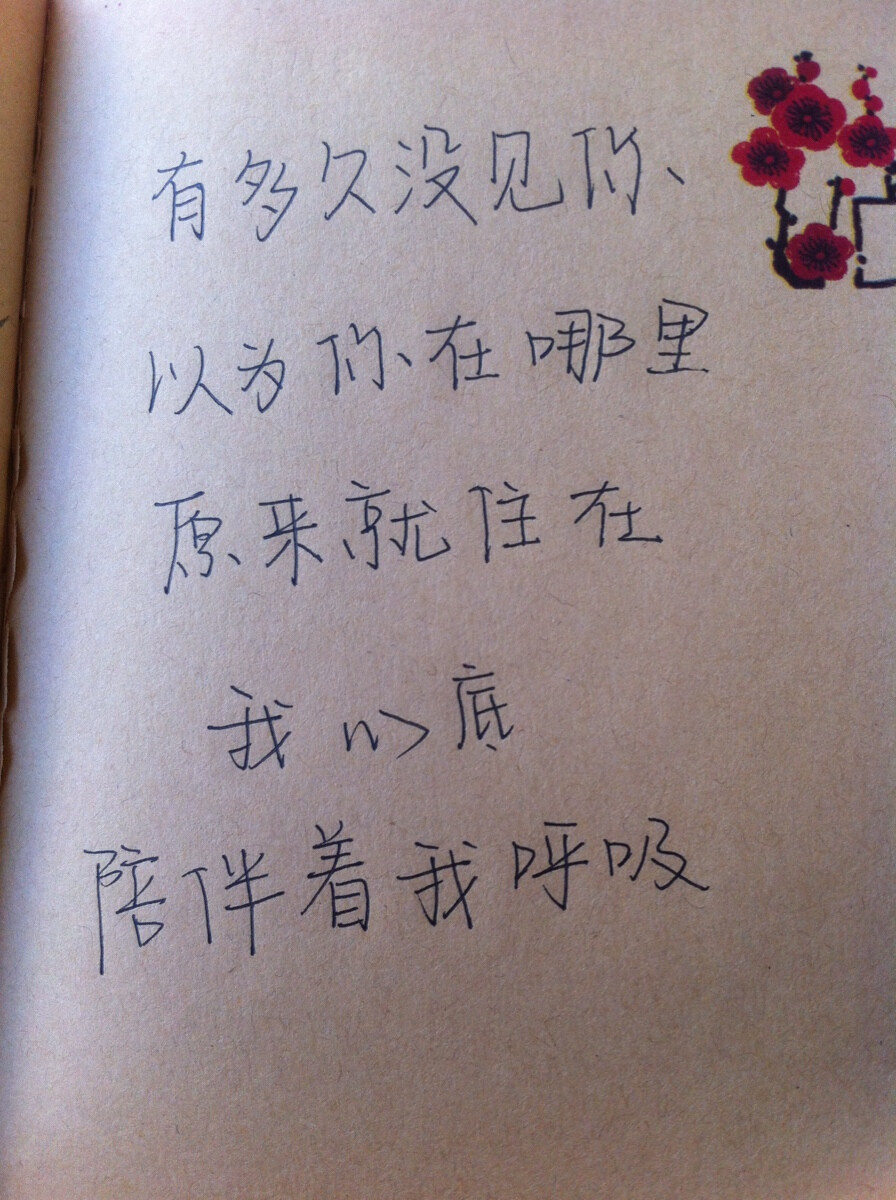 有多久没见你
以为你在哪里
原来就住在
我心底
陪伴着我呼吸